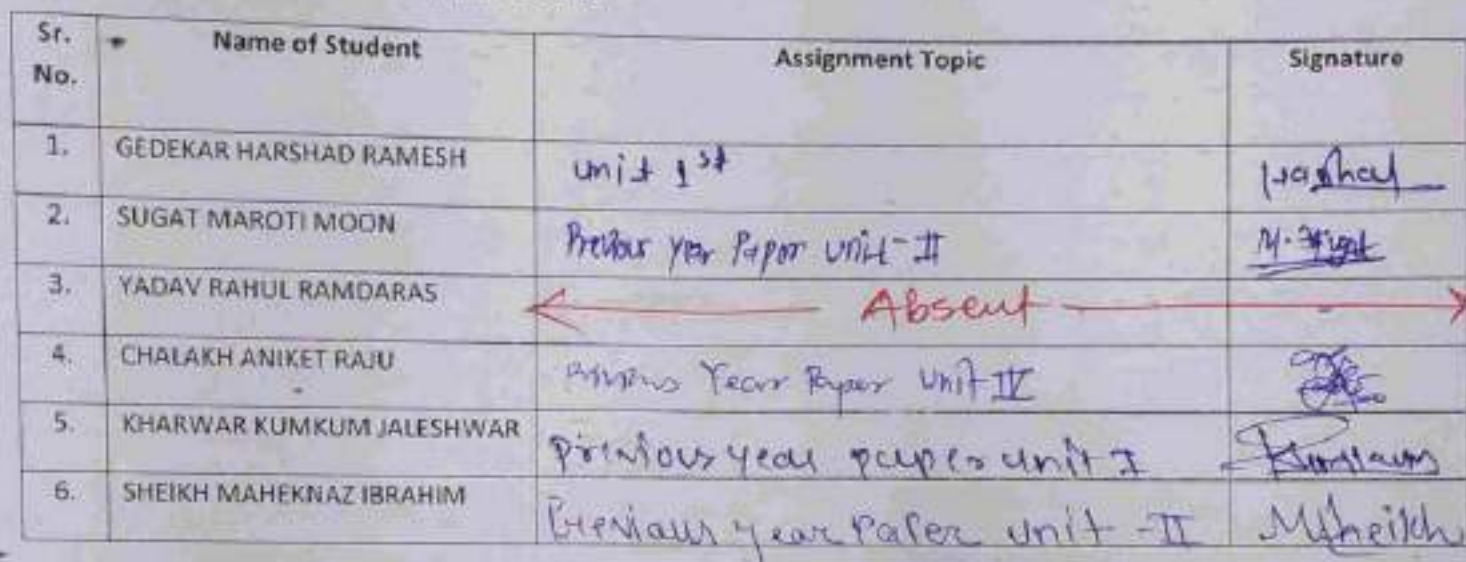 Sr. No. Name of Student Assignment Topic Signature
1. GEDEKAR HARSHAD RAMESH unit 1st Harshad
2. SUGAT MAROTI MOON Previous year Paper Unit-II
3. YADAV RAHUL RAMDARAS Absent
4. CHALAKH ANIKET RAJU Year Paper Unit IV
5. KHARWAR KUMKUM JALESHWAR previous year paper unit I
6. SHEIKH MAHEKNAZ IBRAHIM Previous year Paper unit -II MSheikh